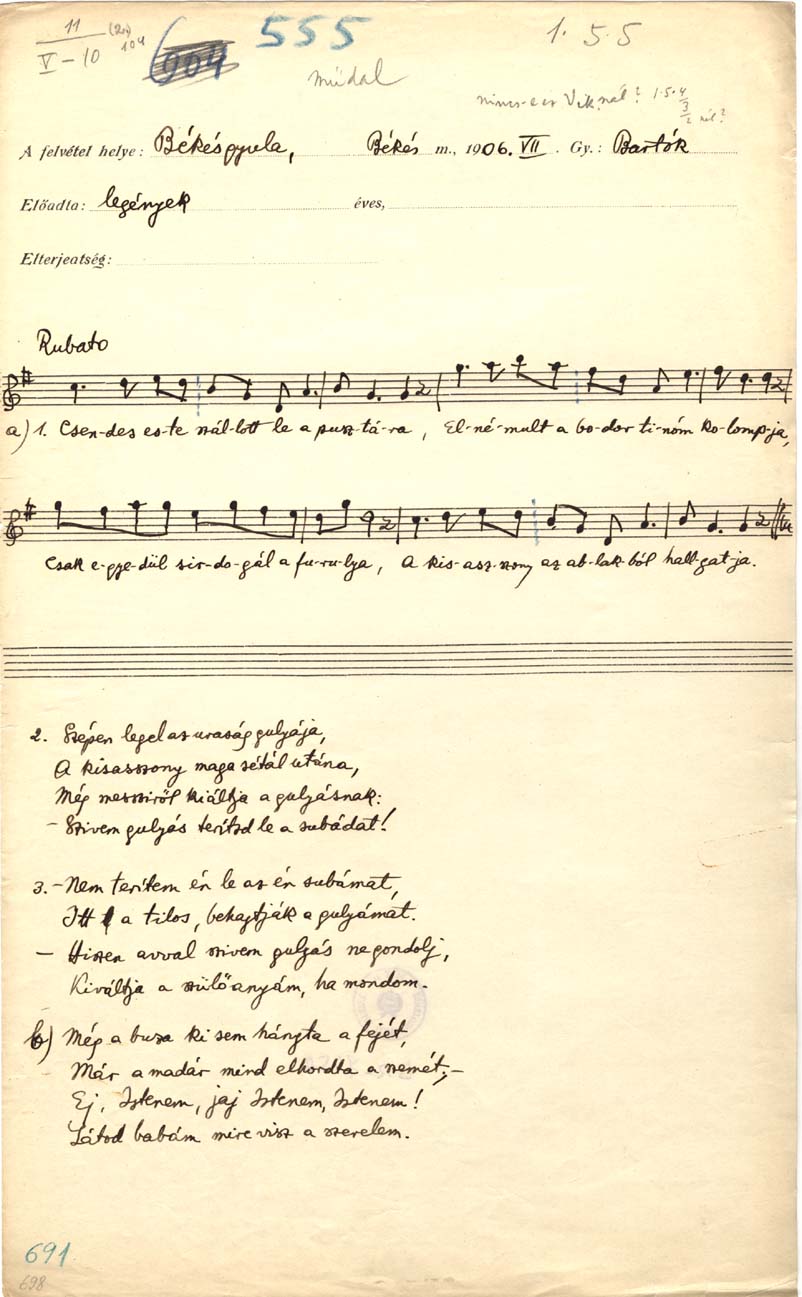 11
V-10
(2x)
104
604
555
1. 5. 5
műdal
nincs-e ez Viknél? 1·5·4
3
2 nél?
A felvétel helye: Békésgyula, Békés m., 1906. VII. Gy.: Bartók
Előadta: legények éves,
Elterjeatség:
Rubato
a) 1. Csen-des es-te szál-lott le a pusz-tá-ra, El-né-mult a bo-dor ti-nóm ko-lomp-ja,
Csak e-gye-dül sir-do-gál a fu-ru-lya, A kis-asz-szony az ab-lak-ból hall-gat-ja.
2. Szépen legel az uraság gulyája,
A kisasszony maga sétál utána,
Még messziről kiáltja a gulyásnak:
– Szivem gulyás terítsd le a subádat!
3. – Nem terítem én le az én subámat,
Itt a tilos, behajtják a gulyámat.
– Hiszen avval szivem gulyás ne gondolj,
Kiváltja a szülőanyám, ha mondom.
b) Még a buza ki sem hányta a fejét,
Már a madár mind elhordta a szemét; –
Ej, Istenem, jaj Istenem, Istenem!
Látod babám mire visz a szerelem.
691
698